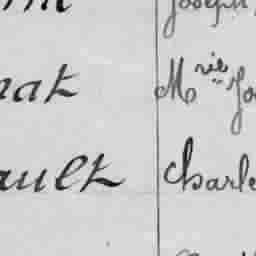 Joseph
nat Mrie Jo
ault Charle